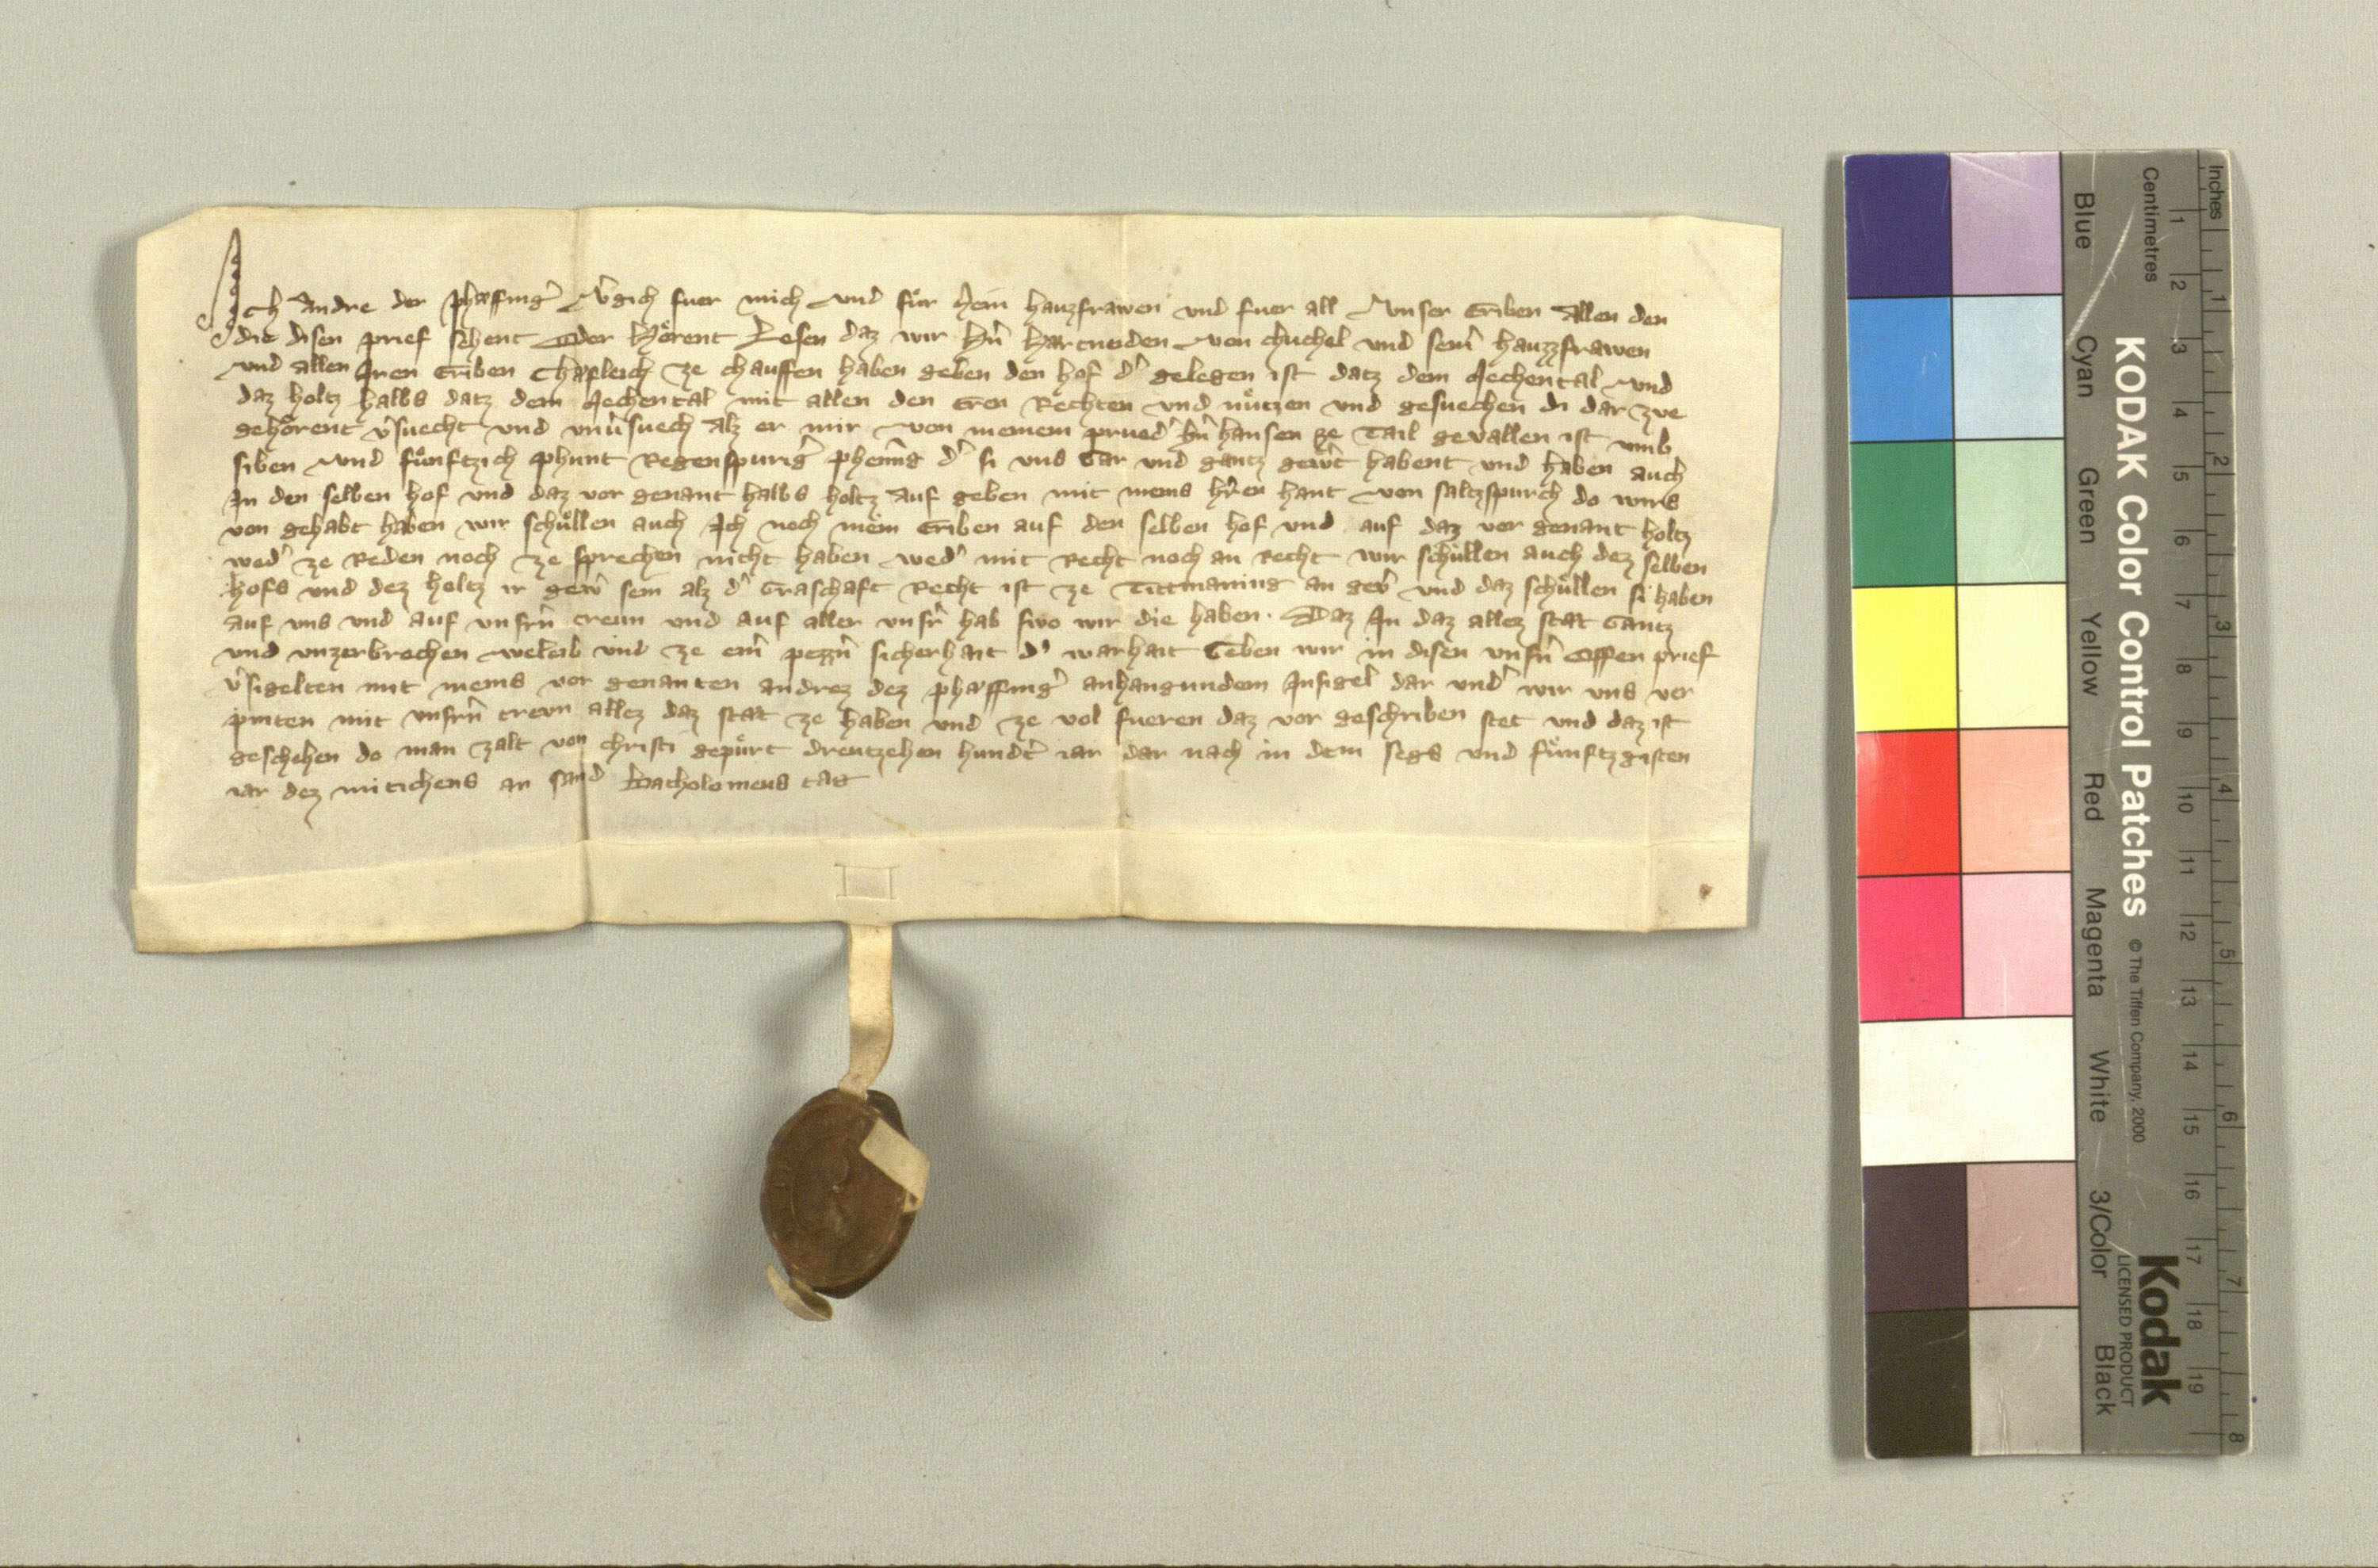 Ich Andre der phaffingˀ vˀgich fuer mich und fuͤr mein hauzfrawen und fuer all Unser Eriben Allen den
die disen prief sehent Oder hoͤrent Lesen daz wir hˀn hartneiden von chuchel und seinˀ hauzzfrawen
und allen Iren Eriben Chaufleich ze chauffen haben geben den hof dˀ gelegen ist datz dem Aechental und
daz holtz halbs datz dem Aechental mit allen den Eren Rechten und nuͤtzen und gesuechen di dar zue
gehoͤrent vˀsuecht und unvˀsuech Alz er mir von meinem pruedˀ hˀn hansen ze Tail gevallen ist umb
siben und fuͤnftzich phunt Regenspurigˀ phennˀg dˀ si uns Gar und gantz gewˀt habent und haben auch
In den selben hof und daz vor genant halbs holtz Auf geben mit meins hˀren hant von saltzspurch do wirs
von gehabt haben wir schuͤllen auch Ich noch mein Eriben auf den selben hof und auf daz vor genant holtz
wedˀ ze Reden noch ze sprechen nicht haben wedˀ mit Recht noch an Recht wir schuͤllen auch dez selben
hofs und dez holtz ir gewˀ sein alz dˀ Graschaft Recht ist ze Tittmaning an gevˀ und daz schuͤllen si haben
auf uns und auf unsrˀn trewn und auf aller unsrˀ hab swo wir die haben. Daz In daz allez stat Gantz
und unzerbrochen weleib und ze einˀ pezzˀn sicherhait dˀ warhait Geben wir in disen unsˀn Offen prief
vˀsigelten mit meins vor genanten andrez dez phaffingˀ anhangundem Insigel dar undˀ wir uns ver
pinten mit unsrˀn trewn allez daz stat ze haben und ze vol fueren daz vor geschriben stet und daz ist
geschehen do man zalt von christi gepuͤrt dreutzehen hundˀt iar dar nach in dem segs und fuͤnftzgisten
iar dez mitichens an sand Bartholomeus tag
KODAK Color Control Patches
© The Tiffen Company, 2000
Kodak
LICENSED PRODUCT
Inches
1 2 3 4 5 6 7 8
Centimetres
1 2 3 4 5 6 7 8 9 10 11 12 13 14 15 16 17 18 19
Blue Cyan Green Yellow Red Magenta White 3/Color Black